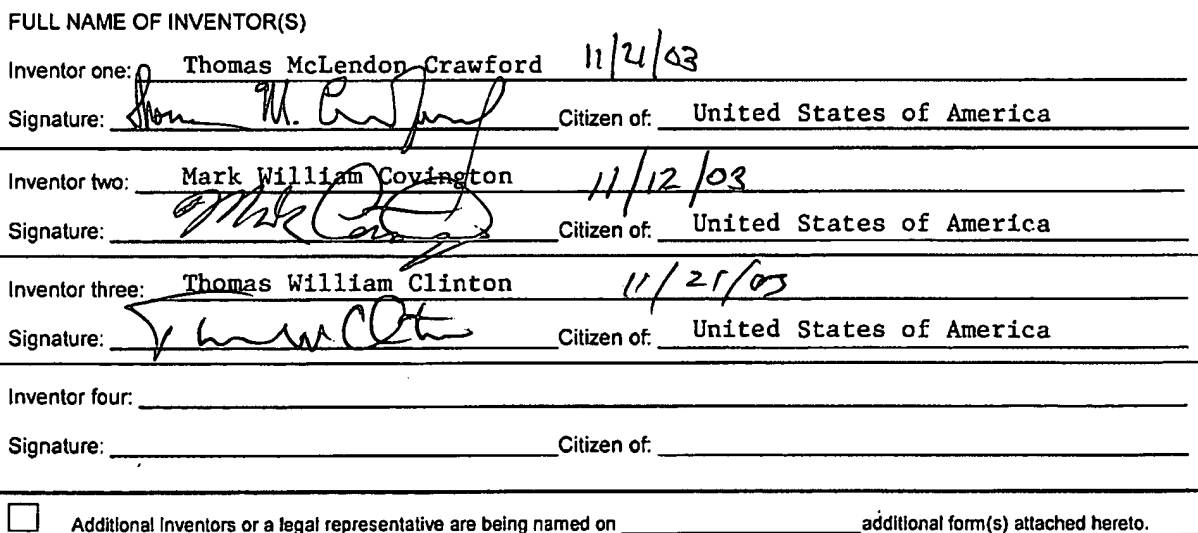 FULL NAME OF INVENTOR(S)
Inventor one: Thomas McLendon Crawford 11/21/03
Signature: Thomas M. Crawford Citizen of: United States of America
Inventor two: Mark William Covington 11/12/03
Signature: Mark Covington Citizen of: United States of America
Inventor three: Thomas William Clinton 11/21/03
Signature: Thomas W Clinton Citizen of: United States of America
Inventor four:
Signature: Citizen of:
Additional inventors or a legal representative are being named on additional form(s) attached hereto.